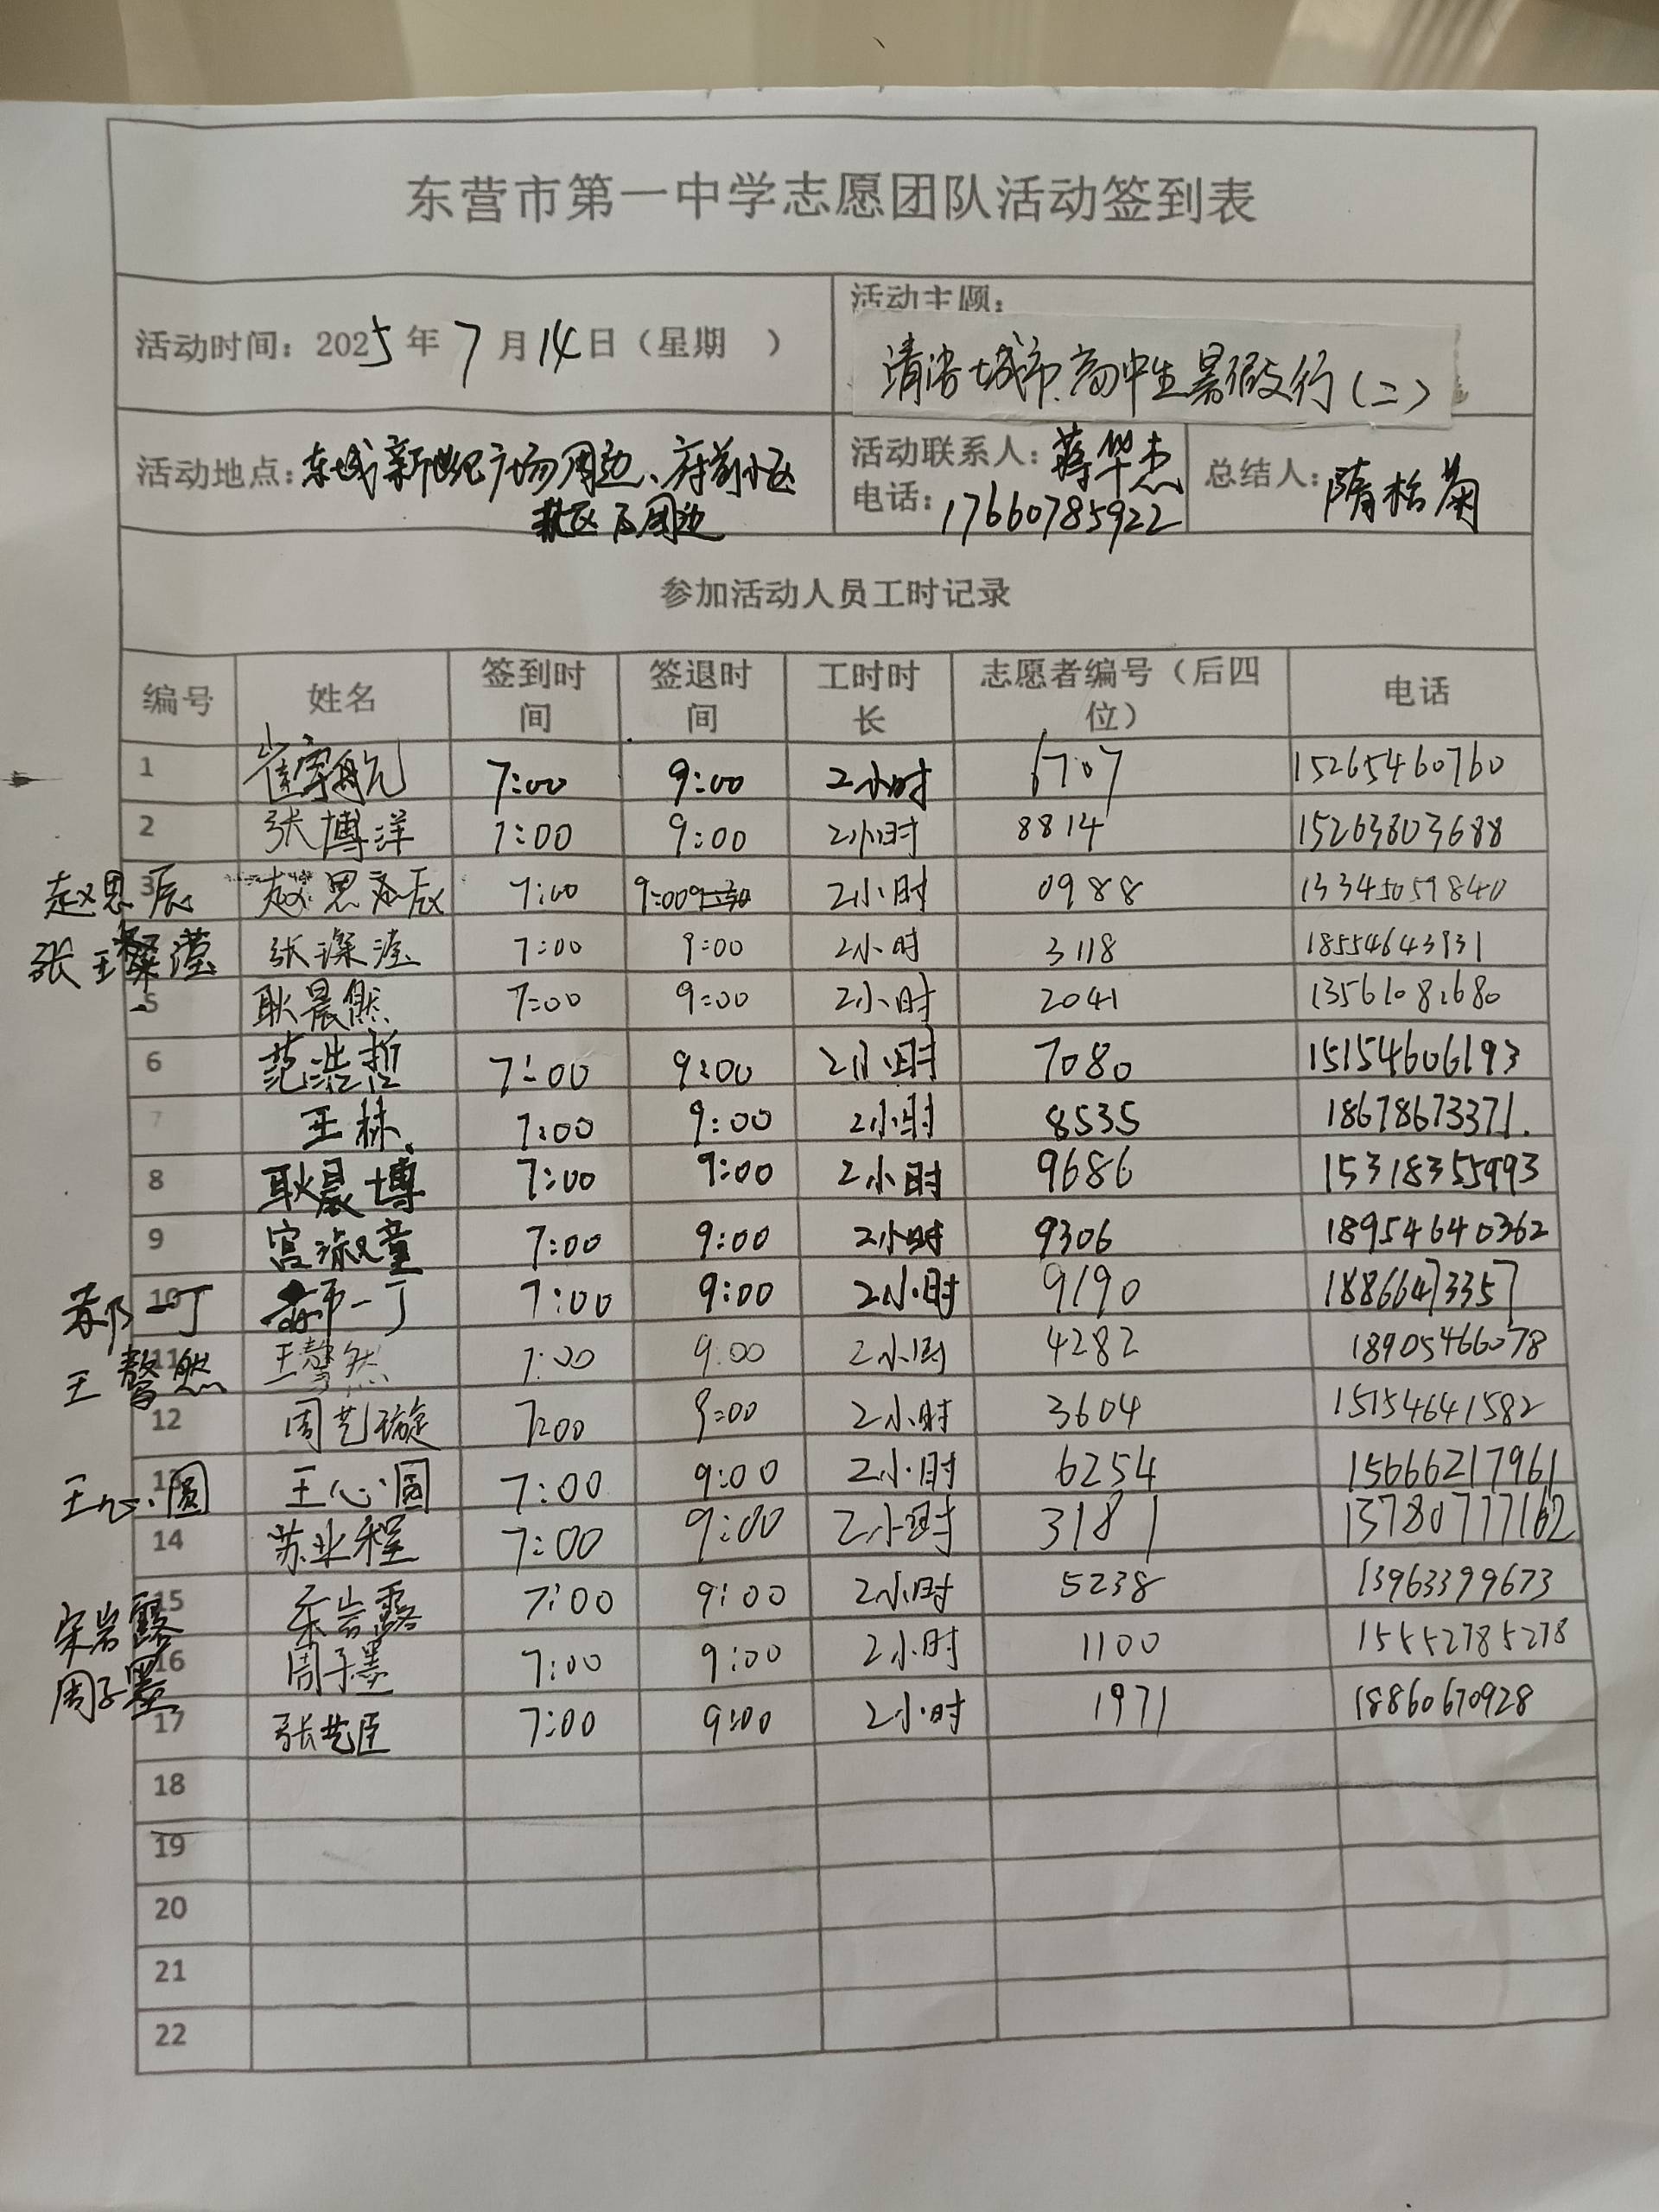 东营市第一中学志愿团队活动签到表
活动时间：2025年7月14日（星期　）
活动主题：
清洁城市,高中生暑假行（二）
活动地点：东城新世纪广场周边、府前小区
及周边
活动联系人：蒋华杰
电话：17660785922
总结人：隋栢菊
参加活动人员工时记录
编号 姓名 签到时间 签退时间 工时时长 志愿者编号（后四位） 电话
1 崔宇航 7:00 9:00 2小时 6707 15265460760
2 张博洋 7:00 9:00 2小时 8814 15263803688
赵思辰 3 赵思辰 7:00 9:00 2小时 0988 13345059840
张璨滢 张璨滢 7:00 9:00 2小时 3118 18554643931
5 耿晨熙 7:00 9:00 2小时 2041 13561082680
6 范浩哲 7:00 9:00 2小时 7080 15154606193
7 王林 7:00 9:00 2小时 8535 18678673371.
8 耿晨博 7:00 9:00 2小时 9686 15318355993
9 宫淑童 7:00 9:00 2小时 9306 18954640362
郝一丁 10 郝一丁 7:00 9:00 2小时 9190 18866473357
王骜然 11 王骜然 7:00 9:00 2小时 4282 18905466078
12 周艺璇 7:00 9:00 2小时 3604 15154641582
王心圆 13 王心圆 7:00 9:00 2小时 6254 15666217961
14 苏业程 7:00 9:00 2小时 3181 13780777162
宋岩露 15 宋岩露 7:00 9:00 2小时 5238 13963399673
周子墨 16 周子墨 7:00 9:00 2小时 1100 15552785278
17 张艺臣 7:00 9:00 2小时 1971 18860670928
18
19
20
21
22